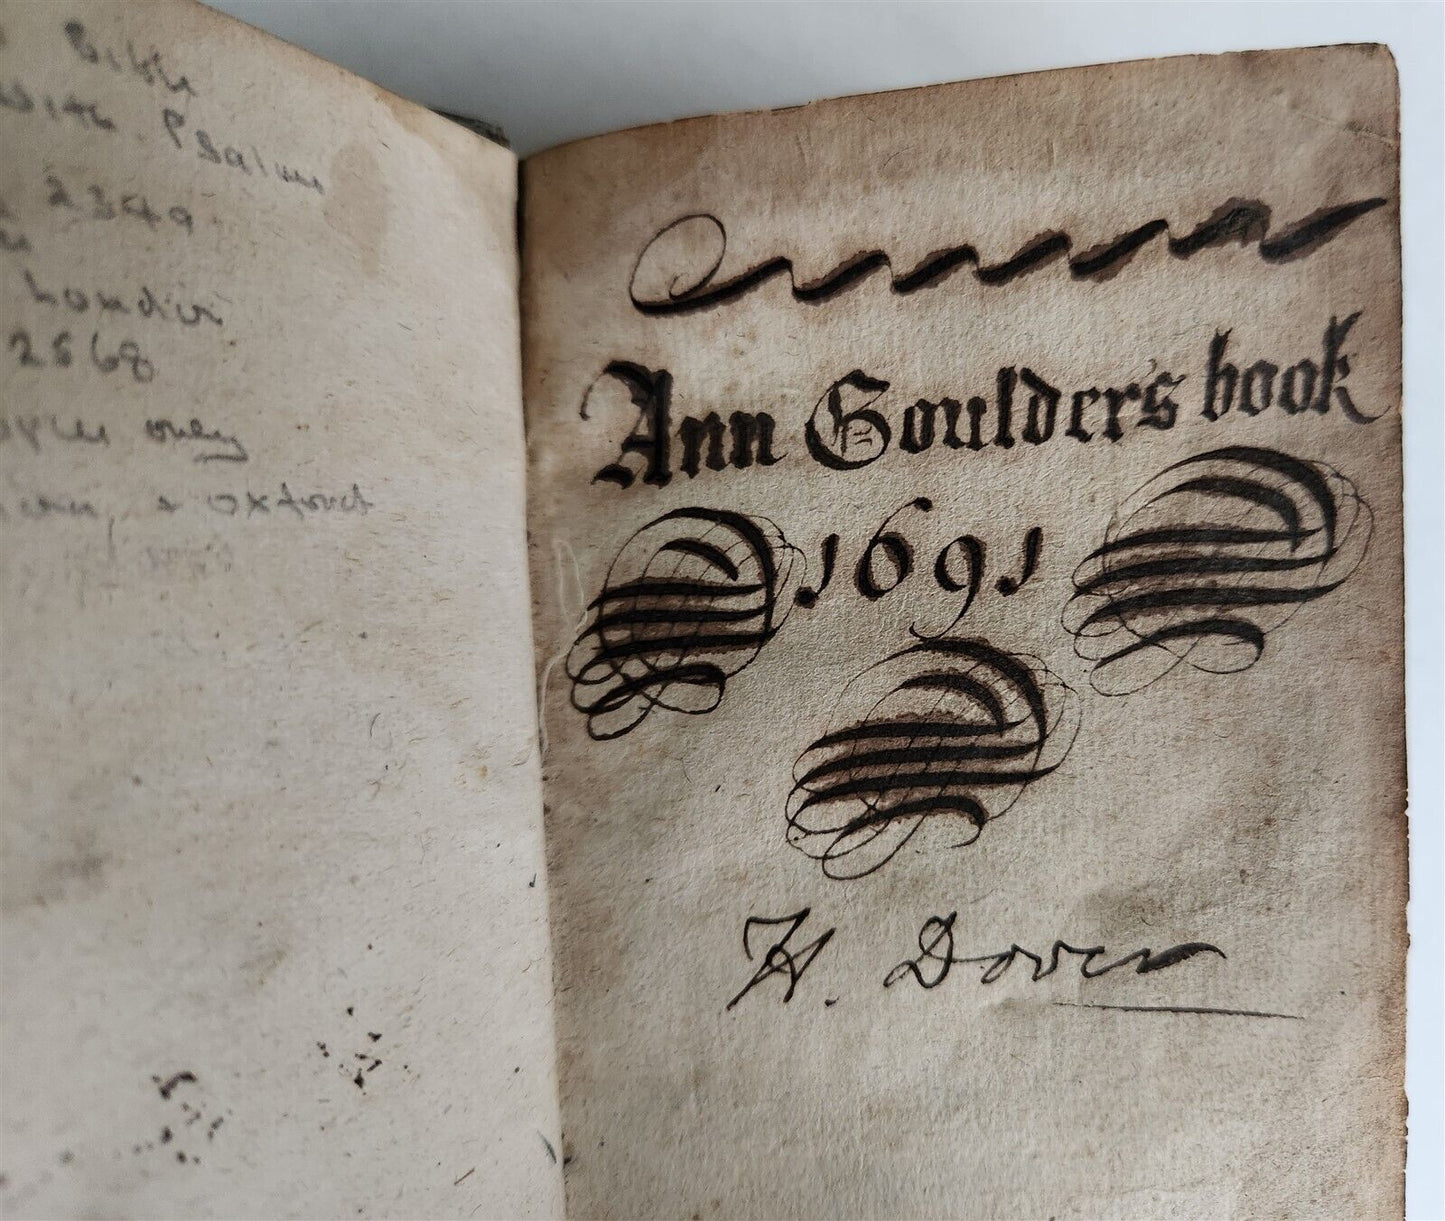 Bible
with Psalms
2349
London
2568
only
& Oxford
Ann Goulders book
1691
H. Dover